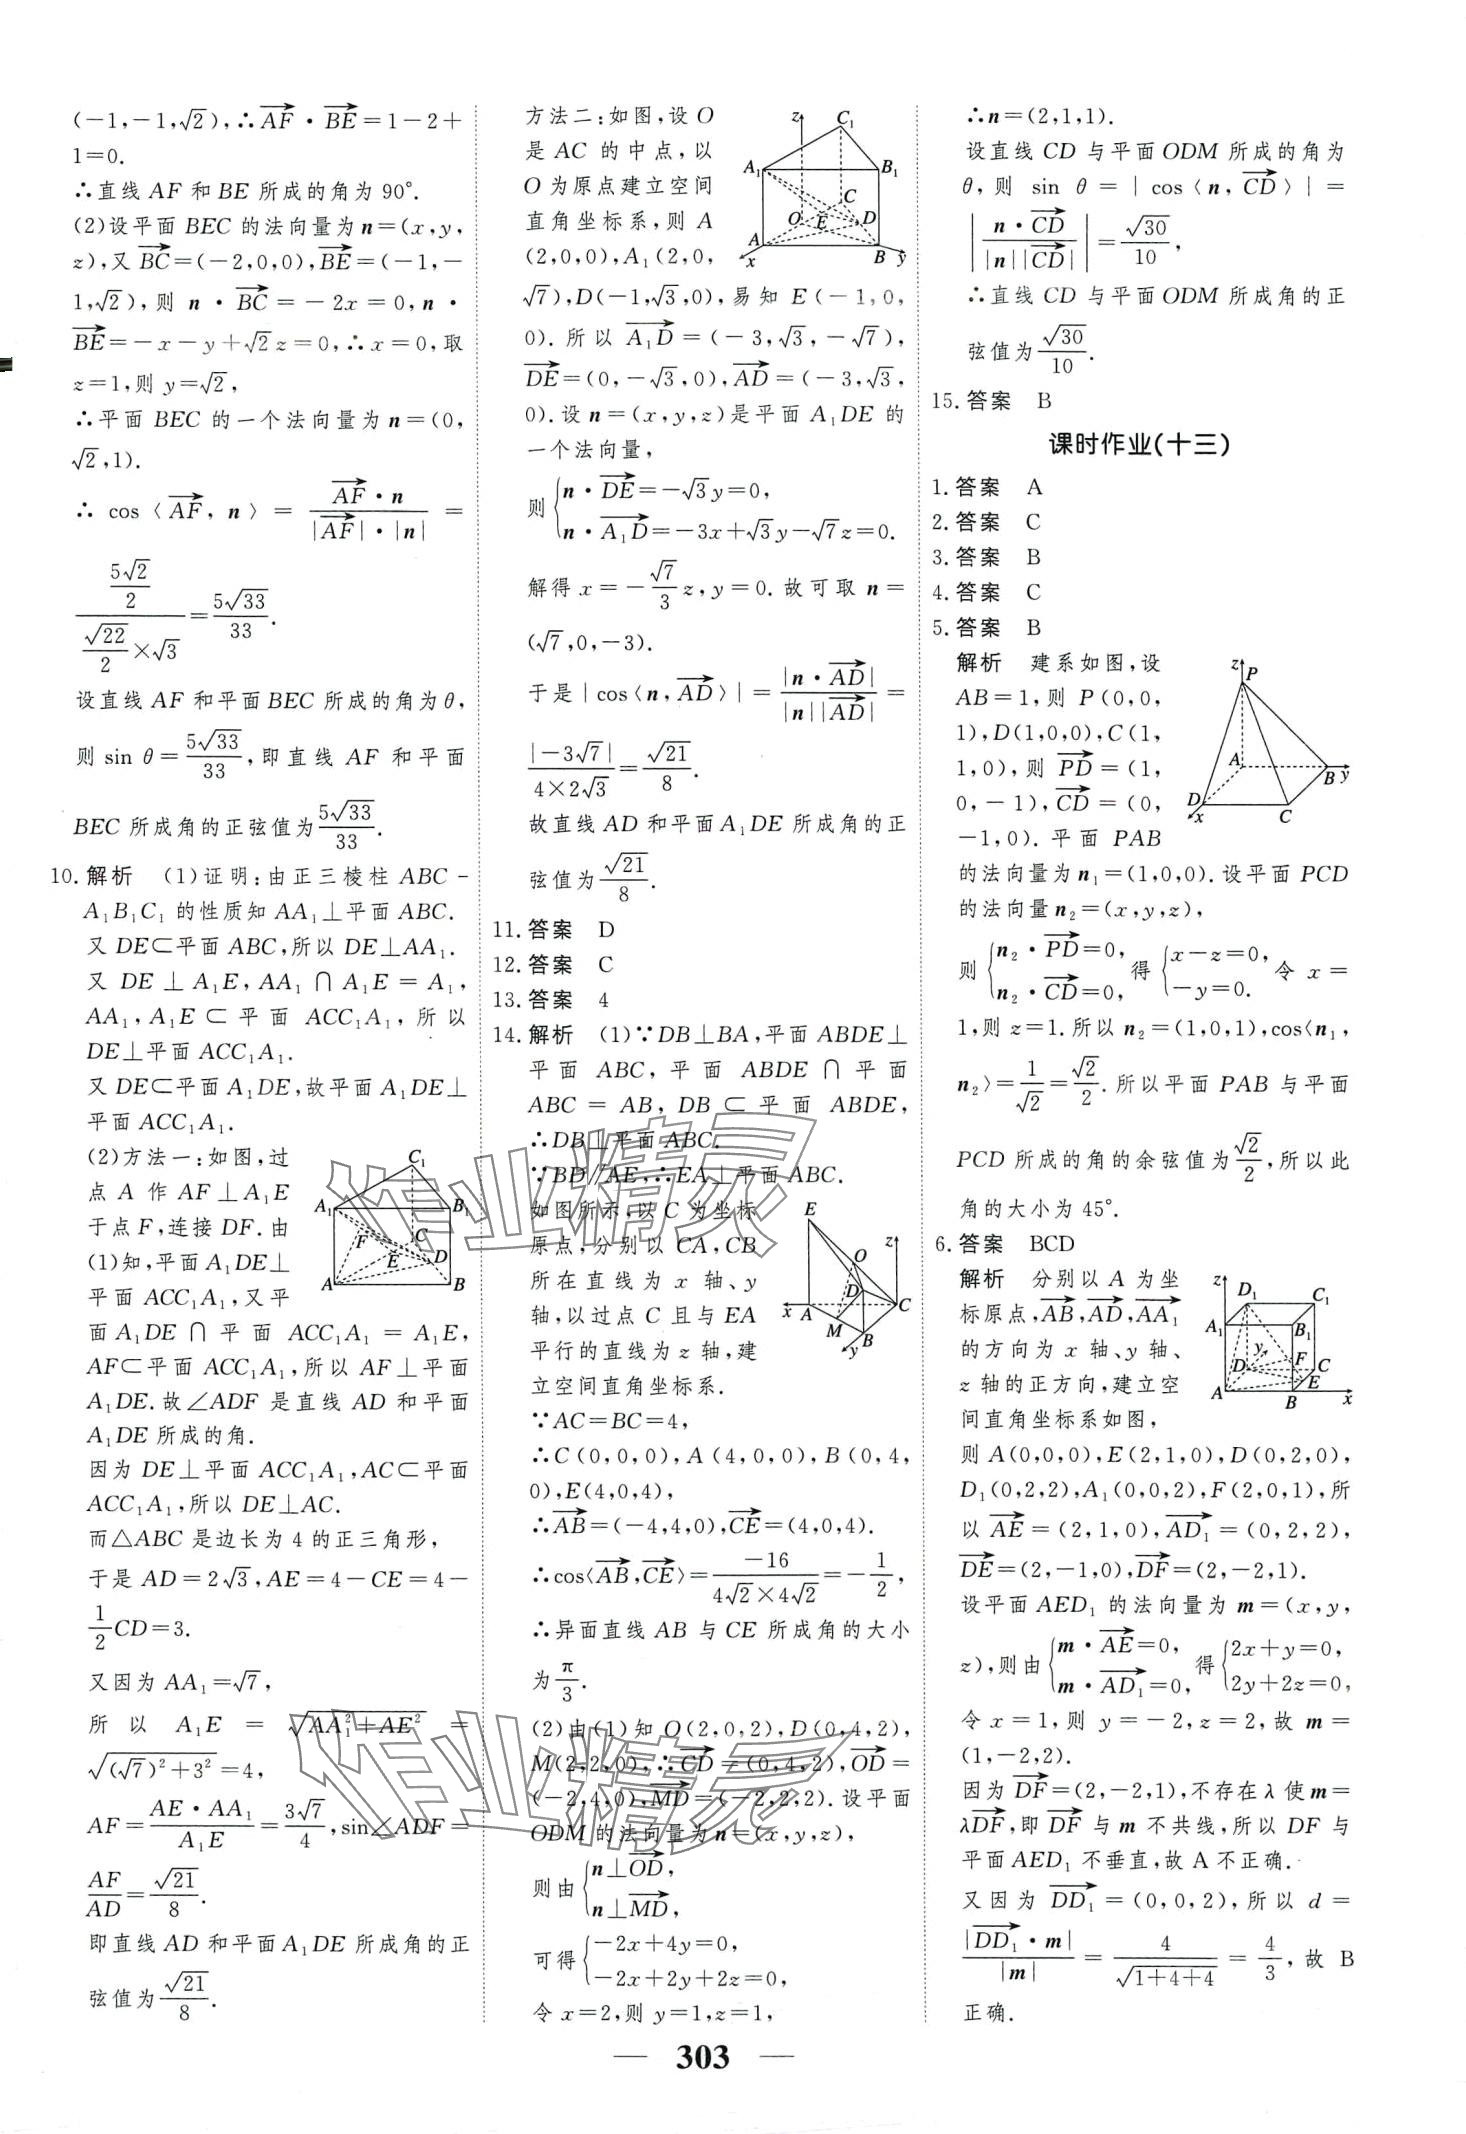 (-1,-1,√2),∴AF→·BE→=1-2+
1=0.
∴直线 AF 和 BE 所成的角为 90°.
(2)设平面 BEC 的法向量为 n=(x,y,
z),又 BC→=(-2,0,0),BE→=(-1,-
1,√2),则 n·BC→=-2x=0,n·
BE→=-x-y+√2z=0,∴x=0,取
z=1,则 y=√2,
∴平面 BEC 的一个法向量为 n=(0,
√2,1).
∴ cos〈AF→,n〉= (AF→·n)/(|AF→|·|n|) =
(5√2/2)/(√22/2×√3)=5√33/33.
设直线 AF 和平面 BEC 所成的角为θ,
则 sin θ=5√33/33,即直线 AF 和平面
BEC 所成角的正弦值为5√33/33.
10.解析 (1)证明:由正三棱柱 ABC-
A₁B₁C₁ 的性质知 AA₁⊥平面 ABC.
又 DE⊂平面 ABC,所以 DE⊥AA₁.
又 DE⊥A₁E,AA₁∩A₁E=A₁,
AA₁,A₁E⊂平面 ACC₁A₁,所以
DE⊥平面 ACC₁A₁.
又 DE⊂平面 A₁DE,故平面 A₁DE⊥
平面 ACC₁A₁.
(2)方法一:如图,过
点 A 作 AF⊥A₁E
于点 F,连接 DF.由
(1)知,平面 A₁DE⊥
平面 ACC₁A₁,又平
面 A₁DE∩平面 ACC₁A₁=A₁E,
AF⊂平面 ACC₁A₁,所以 AF⊥平面
A₁DE.故∠ADF 是直线 AD 和平面
A₁DE 所成的角.
因为 DE⊥平面 ACC₁A₁,AC⊂平面
ACC₁A₁,所以 DE⊥AC.
而△ABC 是边长为 4 的正三角形,
于是 AD=2√3,AE=4-CE=4-
1/2CD=3.
又因为 AA₁=√7,
所以 A₁E=√(AA₁²+AE²)=
√((√7)²+3²)=4,
AF=(AE·AA₁)/A₁E=3√7/4,sin∠ADF=
AF/AD=√21/8.
即直线 AD 和平面 A₁DE 所成角的正
弦值为√21/8.
C₁
A₁ B₁
F C
E D
A B
方法二:如图,设 O
是 AC 的中点,以
O 为原点建立空间
直角坐标系,则 A
(2,0,0),A₁(2,0,
√7),D(-1,√3,0),易知 E(-1,0,
0).所以 A₁D→=(-3,√3,-√7),
DE→=(0,-√3,0),AD→=(-3,√3,
0).设 n=(x,y,z)是平面 A₁DE 的
一个法向量,
则{n·DE→=-√3y=0,
n·A₁D→=-3x+√3y-√7z=0.
解得 x=-√7/3z,y=0.故可取 n=
(√7,0,-3).
于是|cos〈n,AD→〉|=|n·AD→|/(|n||AD→|)=
|-3√7|/(4×2√3)=√21/8.
故直线 AD 和平面 A₁DE 所成角的正
弦值为√21/8.
z C₁
A₁ B₁
C
O E D
A
x B y
11.答案 D
12.答案 C
13.答案 4
14.解析 (1)∵DB⊥BA,平面 ABDE⊥
平面 ABC,平面 ABDE∩平面
ABC=AB,DB⊂平面 ABDE,
∴DB⊥平面 ABC.
∵BD∥AE,∴EA⊥平面 ABC.
如图所示,以 C 为坐标
原点,分别以 CA,CB
所在直线为 x 轴、y
轴,以过点 C 且与 EA
平行的直线为 z 轴,建
立空间直角坐标系.
∵AC=BC=4,
∴C(0,0,0),A(4,0,0),B(0,4,
0),E(4,0,4),
∴AB→=(-4,4,0),CE→=(4,0,4).
∴cos〈AB→,CE→〉=-16/(4√2×4√2)=-1/2,
∴异面直线 AB 与 CE 所成角的大小
为π/3.
(2)由(1)知 O(2,0,2),D(0,4,2),
M(2,2,0),∴CD→=(0,4,2),OD→=
(-2,4,0),MD→=(-2,2,2).设平面
ODM 的法向量为 n=(x,y,z),
则由{n⊥OD→,
n⊥MD→,
可得{-2x+4y=0,
-2x+2y+2z=0,
令 x=2,则 y=1,z=1,
E
O z
D
x A C
M B
y
∴n=(2,1,1).
设直线 CD 与平面 ODM 所成的角为
θ,则 sin θ=|cos〈n,CD→〉|=
|n·CD→/(|n||CD→|)|=√30/10,
∴直线 CD 与平面 ODM 所成角的正
弦值为√30/10.
15.答案 B
课时作业(十三)
1.答案 A
2.答案 C
3.答案 B
4.答案 C
5.答案 B
解析 建系如图,设
AB=1,则 P(0,0,
1),D(1,0,0),C(1,
1,0),则 PD→=(1,
0,-1),CD→=(0,
-1,0).平面 PAB
的法向量为 n₁=(1,0,0).设平面 PCD
的法向量 n₂=(x,y,z),
则{n₂·PD→=0,
n₂·CD→=0,得{x-z=0,
-y=0.令 x=
1,则 z=1.所以 n₂=(1,0,1),cos〈n₁,
n₂〉=1/√2=√2/2.所以平面 PAB 与平面
PCD 所成的角的余弦值为√2/2,所以此
角的大小为 45°.
z P
A B y
D
x C
6.答案 BCD
解析 分别以 A 为坐
标原点,AB→,AD→,AA₁→
的方向为 x 轴、y 轴、
z 轴的正方向,建立空
间直角坐标系如图,
则 A(0,0,0),E(2,1,0),D(0,2,0),
D₁(0,2,2),A₁(0,0,2),F(2,0,1),所
以 AE→=(2,1,0),AD₁→=(0,2,2),
DE→=(2,-1,0),DF→=(2,-2,1).
设平面 AED₁ 的法向量为 m=(x,y,
z),则由{m·AE→=0,
m·AD₁→=0,得{2x+y=0,
2y+2z=0,
令 x=1,则 y=-2,z=2,故 m=
(1,-2,2).
因为 DF→=(2,-2,1),不存在 λ 使 m=
λDF→,即 DF→ 与 m 不共线,所以 DF 与
平面 AED₁ 不垂直,故 A 不正确.
又因为 DD₁→=(0,0,2),所以 d=
|DD₁→·m|/|m|=4/√(1+4+4)=4/3,故 B
正确.
z D₁ C₁
A₁ B₁
y F
D C
E
A B x
作业精灵
作业精灵
— 303 —